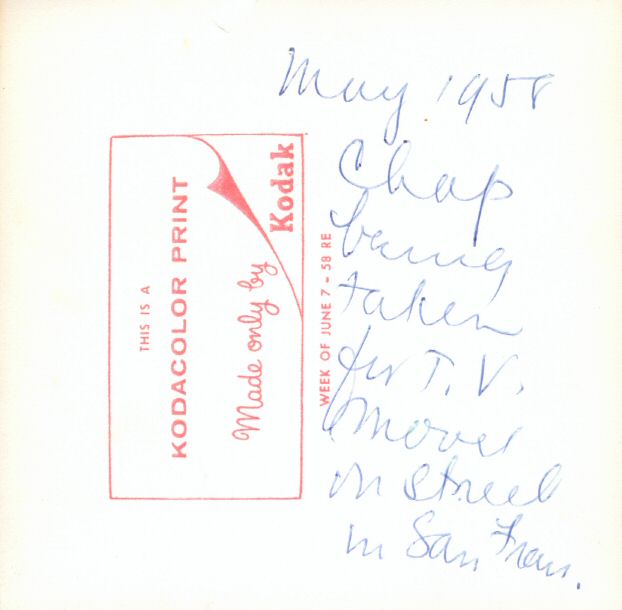 May 1958
Chap
being
taken
for T.V.
movie
on street
in San Fran.
THIS IS A
KODACOLOR PRINT
Made only by
Kodak
WEEK OF JUNE 7 - 58 RE